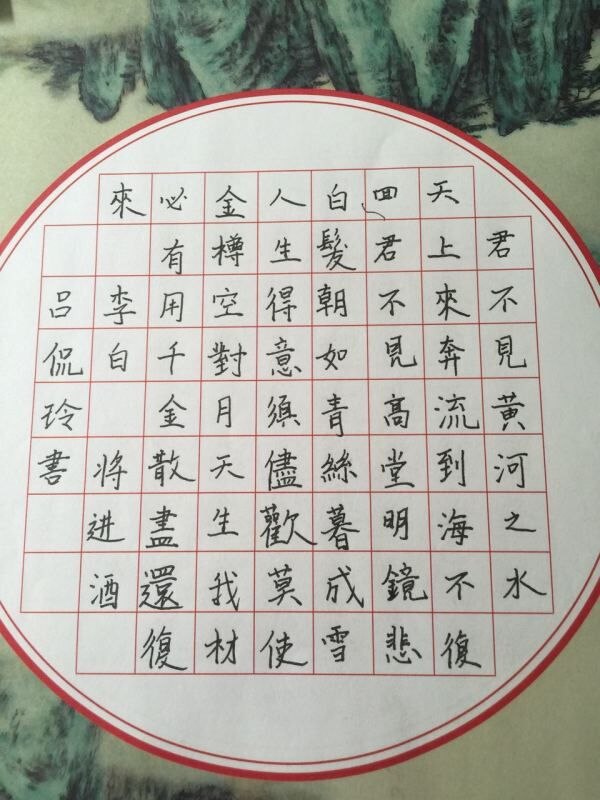 君不見黃河之水
天上來奔流到海不復
回君不見高堂明鏡悲
白髮朝如青絲暮成雪
人生得意須儘歡莫使
金樽空對月天生我材
必有用千金散盡還復
來 李白 将進酒
吕侃玲書